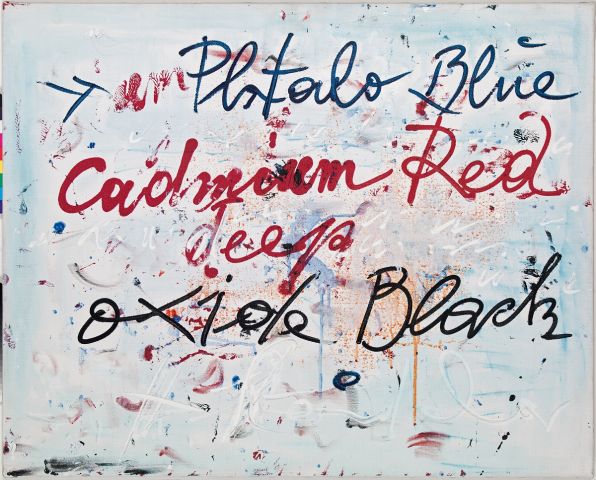 Phtalo Blue
Cadmium Red
deep
oxide Black